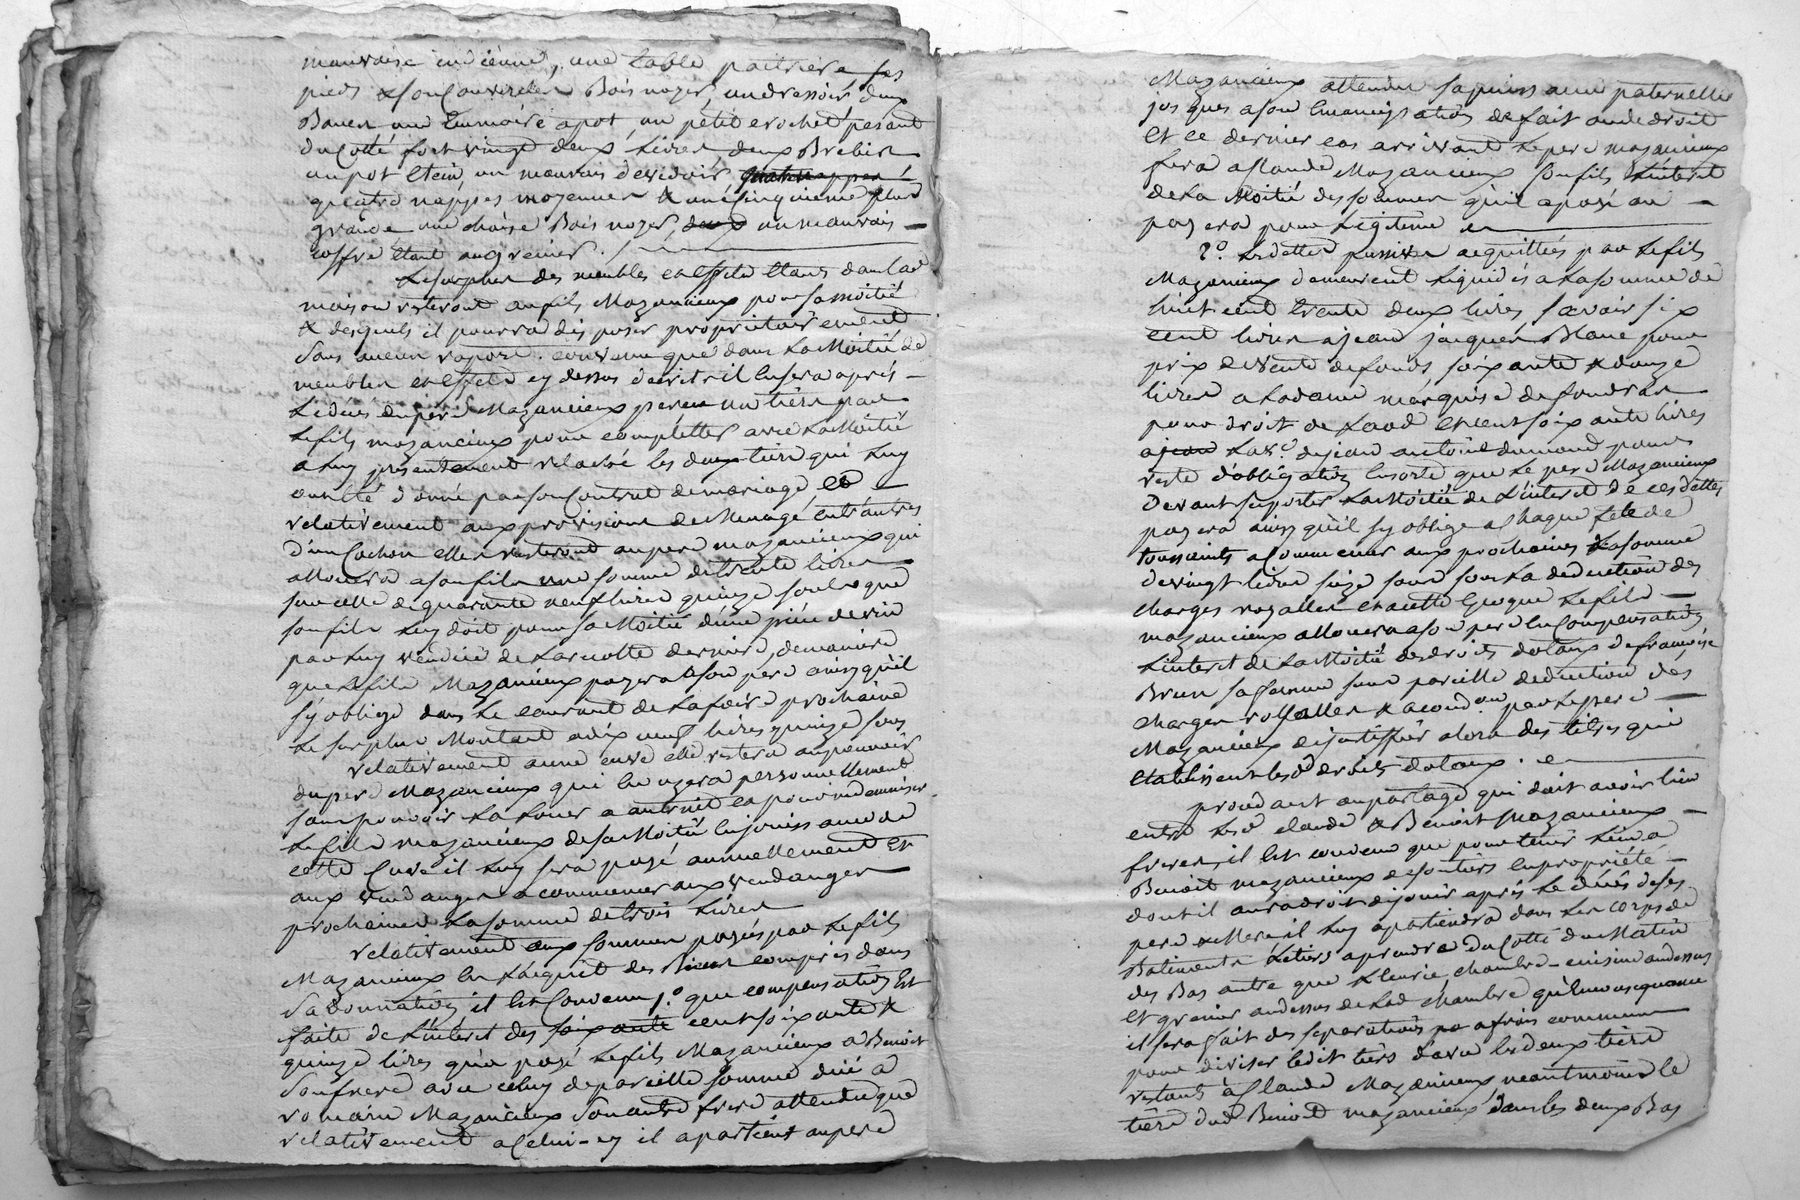 mauvaise indienne, une table paitriere ses
pieds & son Couvercle Bois noyer, un dressoir deux
Bancs une Ermoire apot, un petit crochet pesant
du Cotté fort vingt deux Livres deux Brebis
un pot Etein, un mauvais devidoir,
quatre nappes moyennes & une Cinquieme plus
grande une chaise Bois noyer, un mauvais
coffre étant au grenier.
Le surplus des meubles et effets étans dans lad
maison resteront au fils Mazancieux pour sa moitié
& desquels il pourra disposer propriétairement
Sans aucun raport. convenu que dans La Moitié de
meubles et effets cy dessus decrits il en sera aprés
Le deces du pere Mazancieux percu un tiers par
Le fils mazancieux pour completter avec La Moitié
a Luy présentement relaché les deux tiers qui Luy
ont été donné par son Contrat de mariage et
relativement aux provisions de Menage entr'autres
d'un Cochon elles resteront au pere mazancieux qui
allouera a son fils une somme de trente livres
sur celle de quarante neuf livres quinze sols que
son fils Luy doit pour sa Moitié d'une piéce de vin
par Luy vendüe de La recolte derniere, de maniere
que Le fils Mazancieux payera a son pere ainsy qu'il
s'y oblige dans Le courant de La foire prochaine
Le surplus Montant a dix neuf livres quinze sous
relativement a une cuve elle restera au pouvoir
du pere Mazancieux qui en usera personnellement
sans pouvoir La Louer a autruit et pour indemniser
Le fils mazancieux de sa Moitié en jouissance de
cette Cuve il Luy sera payé annuellement Et
aux vendanges a commencer aux vendanges
prochaines La somme de trois Livres
relativement aux sommes payés par Le fils
Mazancieux en L'acquit des Biens compris dans
Sa donnation, il est Convenu 1.º que compensation Est
faite de L'interet des soixante cent soixante &
quinze livres qu'a payé Le fils Mazancieux a Benoit
Son frere avec celuy de pareille somme düe a
romain Mazancieux Son autre frere attendu que
relativement a Celui-cy il apartient au pere
Mazancieux attendu sa puissance paternelle
jusques a son Emancipation de fait ou de droit
Et ce dernier cas arrivant Le pere mazancieux
fera a Claude Mazancieux Son fils L'interet
de La Moitié des sommes qu'il a payé ou
payera pour Legitime et
2.º Les dettes passives acquittées par Le fils
Mazancieux demeurent Liquidés a La somme de
huit cent trente deux livres savoir six
cent livres a jean jacques Blanc pour
prix de vente de fonds soixante & douze
livres a La dame marquise de foudras
pour droit de Laod et cent soixante livres
de jean antoine dumond pour
reste d'obligation Ensorte que Le pere Mazancieux
Devant suporter La Moitié de L'interet de ces dettes
payera ainsy qu'il s'y oblige a chaque fete de
toussaints a Commencer aux prochaines La somme
de vingt livres seize sous sous La deduction des
charges royalles et a cette Epoque Le fils
mazancieux allouera a son pere en Compensation
L'interet de La Moitié des droits dotaux de francoise
Brun sa femme sous pareille deduction des
charges royalles & a condon par Le pere
Mazancieux de justiffier alors des titres qui
etablissent lesd droits dotaux. et
procedant au partage qui doit avoir lieu
entre Les d Claude & Benoit Mazancieux
freres, il est convenu que pour tenir Lieu a
Benoit mazancieux de son tiers en propriété
dont il aura droit de jouir aprés Le décés de ses
pere & Mere il Luy apartiendra dans Les corps de
Batiments Le tiers a prendre du Cotté du Matin
des Bas autre que L'ecurie, chambre-cuisine au dessus
Et grenier au dessus de Lad chambre qu'en consequence
il sera fait des separations a frais communs
pour diviser ledit tiers d'avec les deux tiers
restants à Claude Mazancieux, neantmoins le
tiers dud Benoit mazancieux dans les deux Bas